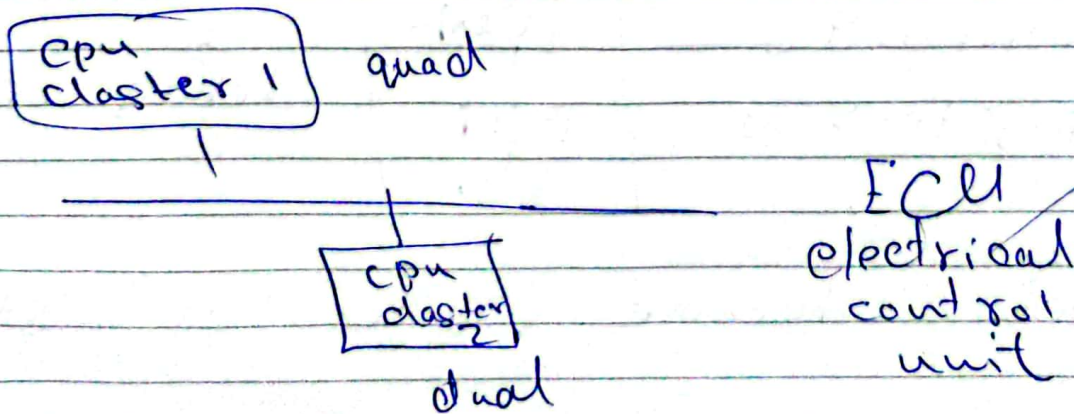 cpu
claster 1
quad
cpu
claster
2
dual
ECU
electrical
control
unit